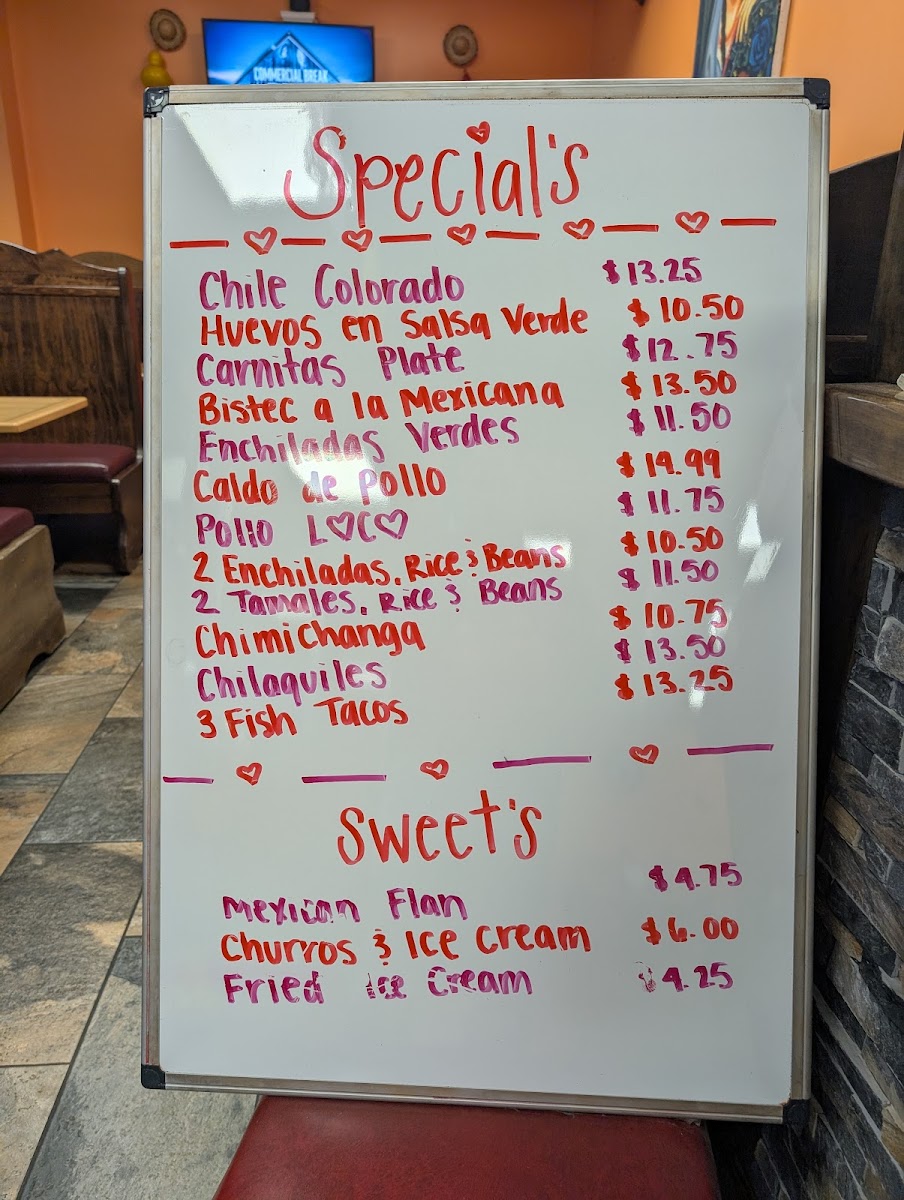 COMMERCIAL BREAK
Special's
Chile Colorado $13.25
Huevos en Salsa Verde $10.50
Carnitas Plate $12.75
Bistec a la Mexicana $13.50
Enchiladas Verdes $11.50
Caldo de Pollo $14.99
Pollo L♡C♡ $11.75
2 Enchiladas, Rice & Beans $10.50
2 Tamales, Rice & Beans $11.50
Chimichanga $10.75
Chilaquiles $13.50
3 Fish Tacos $13.25
Sweet's
Mexican Flan $4.75
Churros & Ice Cream $6.00
Fried Ice Cream $4.25